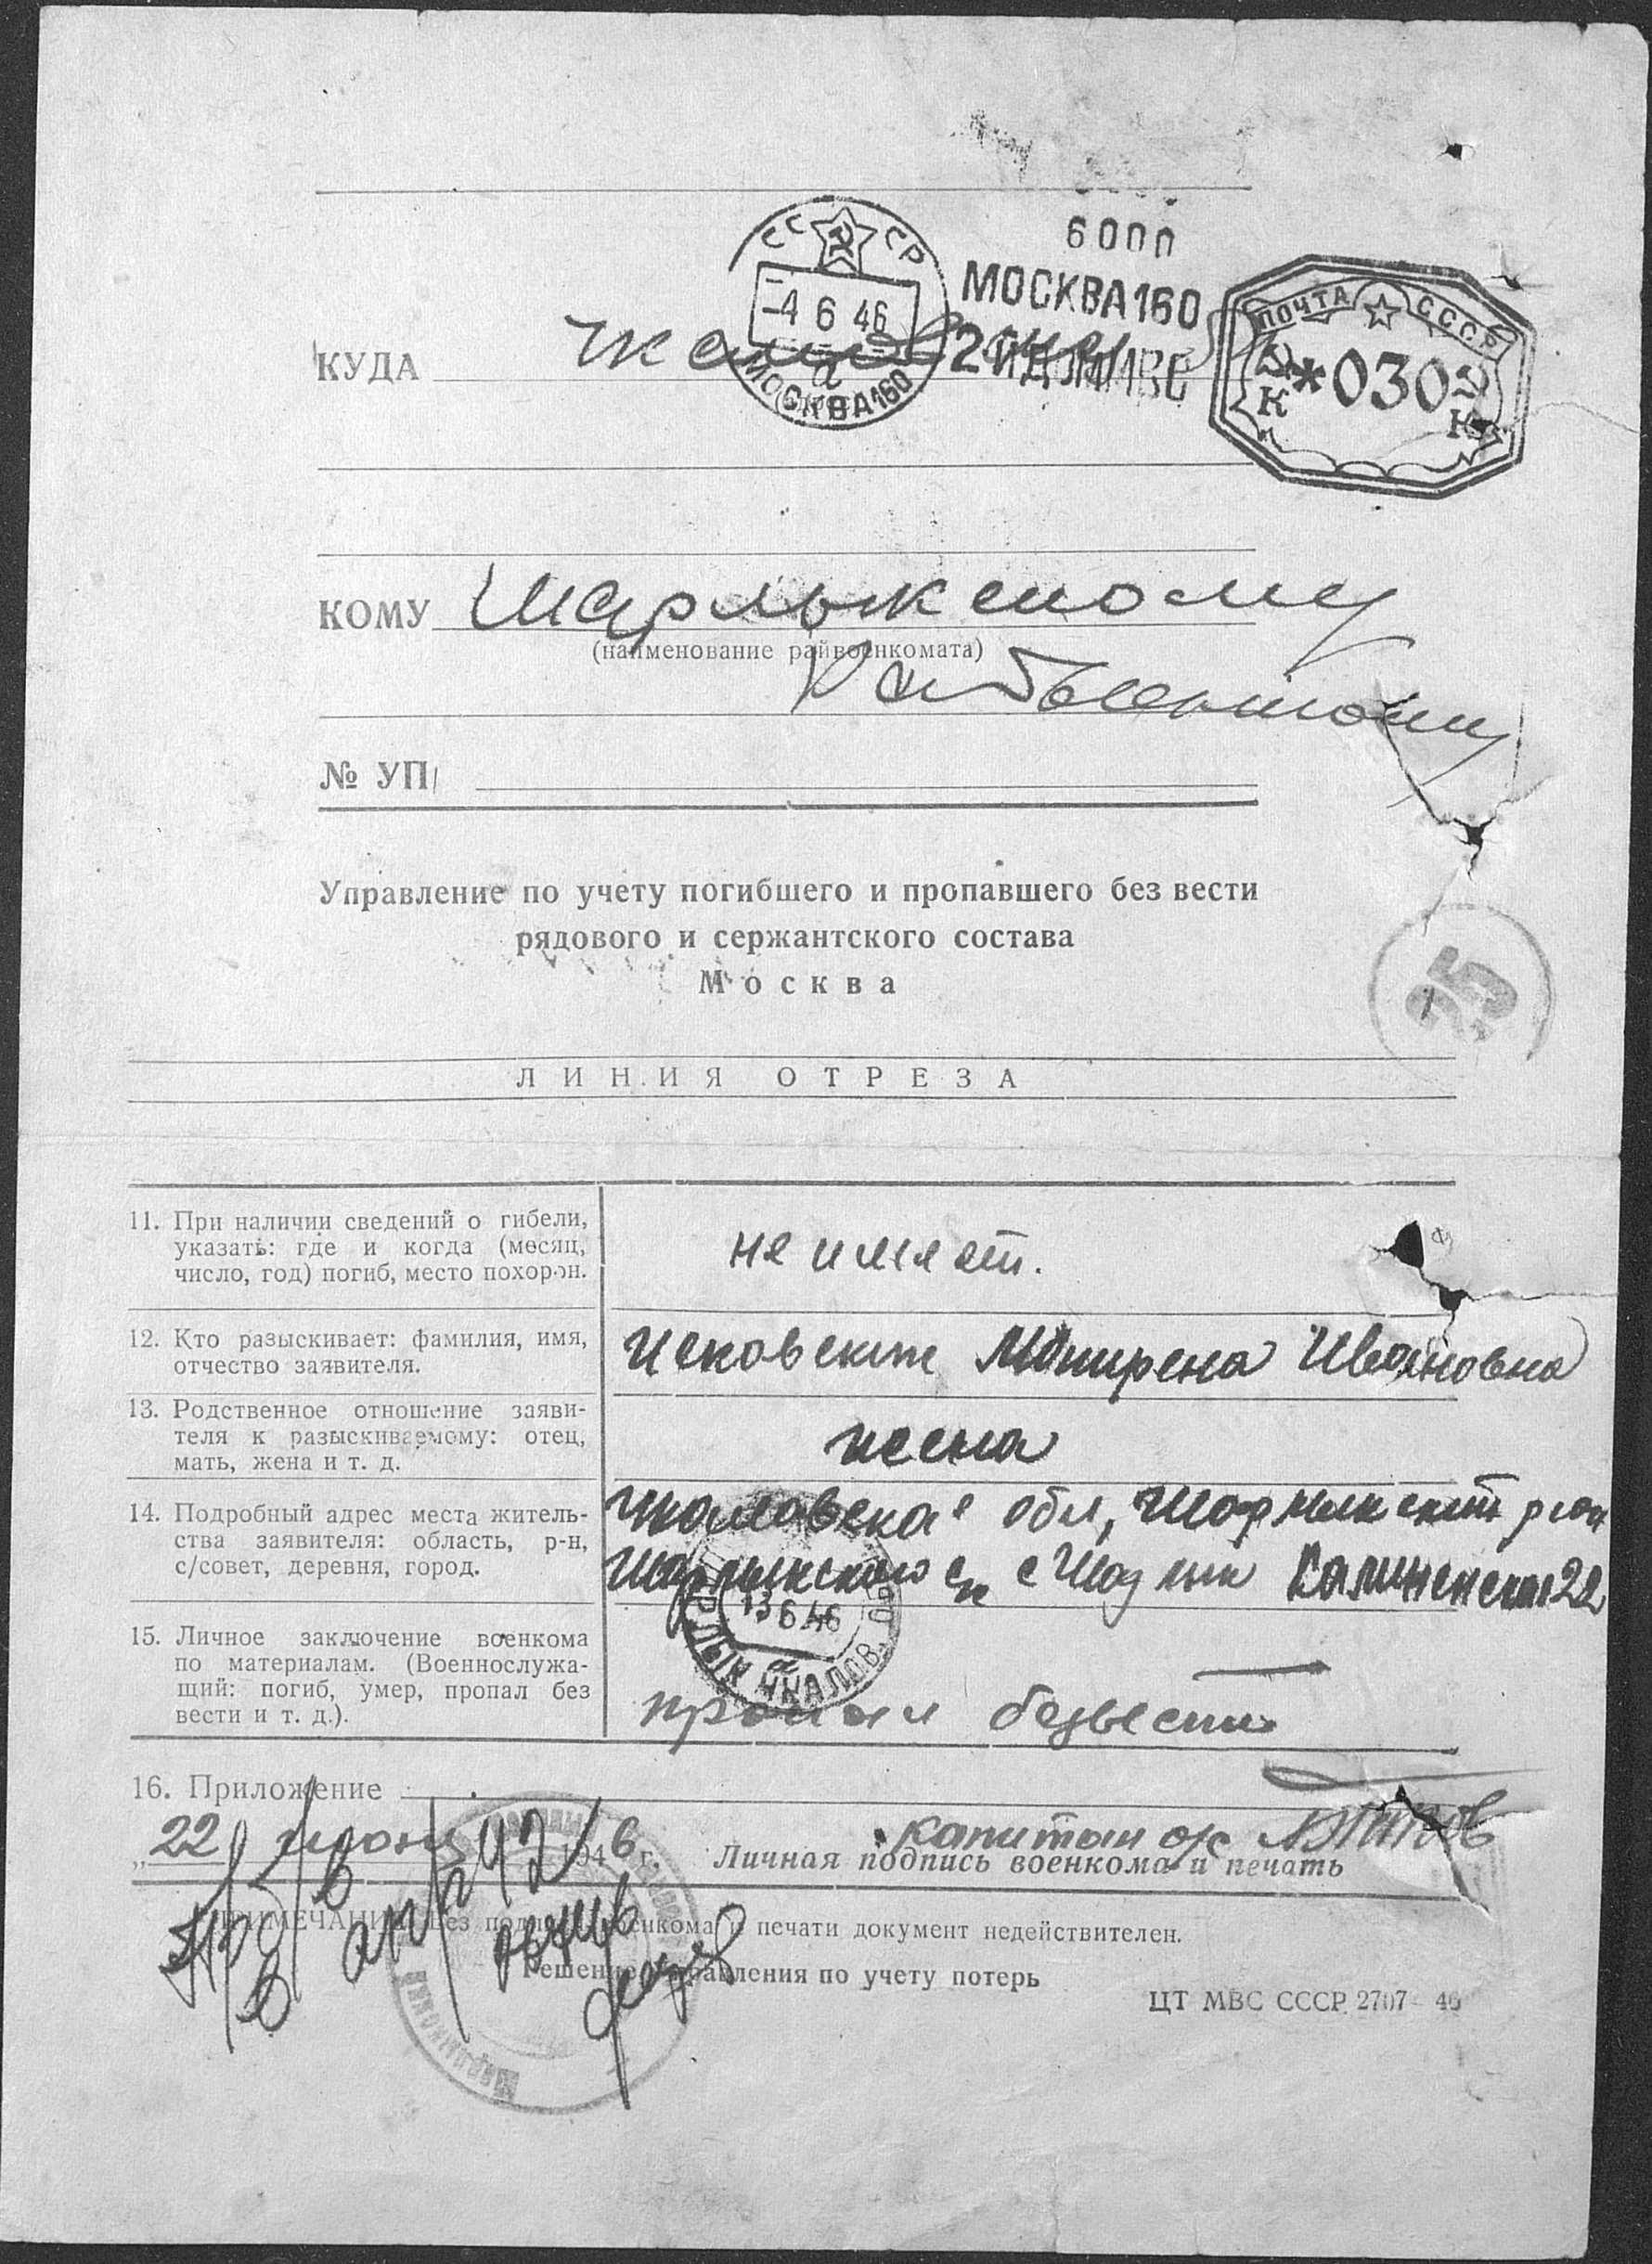 СССР
-4 6 46
а
МОСКВА 160
МОСКВА 160
ПОЧТА СССР
К *030 К
КУДА
КОМУ Шарлыкскому
(наименование райвоенкомата)
Райвоенкому
№ УП/
Управление по учету погибшего и пропавшего без вести
рядового и сержантского состава
Москва
25
ЛИНИЯ ОТРЕЗА
11. При наличии сведений о гибели,
указать: где и когда (месяц,
число, год) погиб, место похорон.
не имеет.
12. Кто разыскивает: фамилия, имя,
отчество заявителя.
Ивановна
13. Родственное отношение заяви-
теля к разыскиваемому: отец,
мать, жена и т. д.
жена
14. Подробный адрес места житель-
ства заявителя: область, р-н,
с/совет, деревня, город.
Чкаловская обл, Шарлыкский р-он
Шарлыкского с/с с Шарлык Калиненская 22
13 6 46
15. Личное заключение военкома
по материалам. (Военнослужа-
щий: погиб, умер, пропал без
вести и т. д.).
пропал безвести
16. Приложение
капитан а/с
„22 июня 1946 г. Личная подпись военкома и печать
ПРИМЕЧАНИЕ: Без подписи военкома и печати документ недействителен.
Решение Управления по учету потерь
ЦТ МВС СССР 2707—46